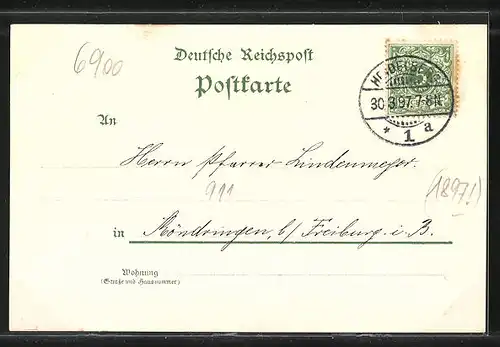 6900
Deutsche Reichspost
Postkarte
HEIDELBERG
30.3.97.7-8N.
* 1 a
An
Herrn Pfarrer Lindenmeyer.
911
(1897!)
in Möndringen, b/ Freiburg i. B.
Wohnung
(Straße und Hausnummer)